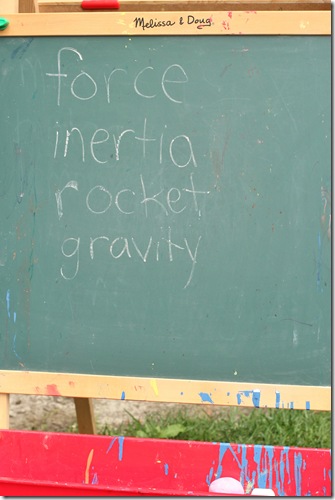 Melissa & Doug
force
inertia
rocket
gravity